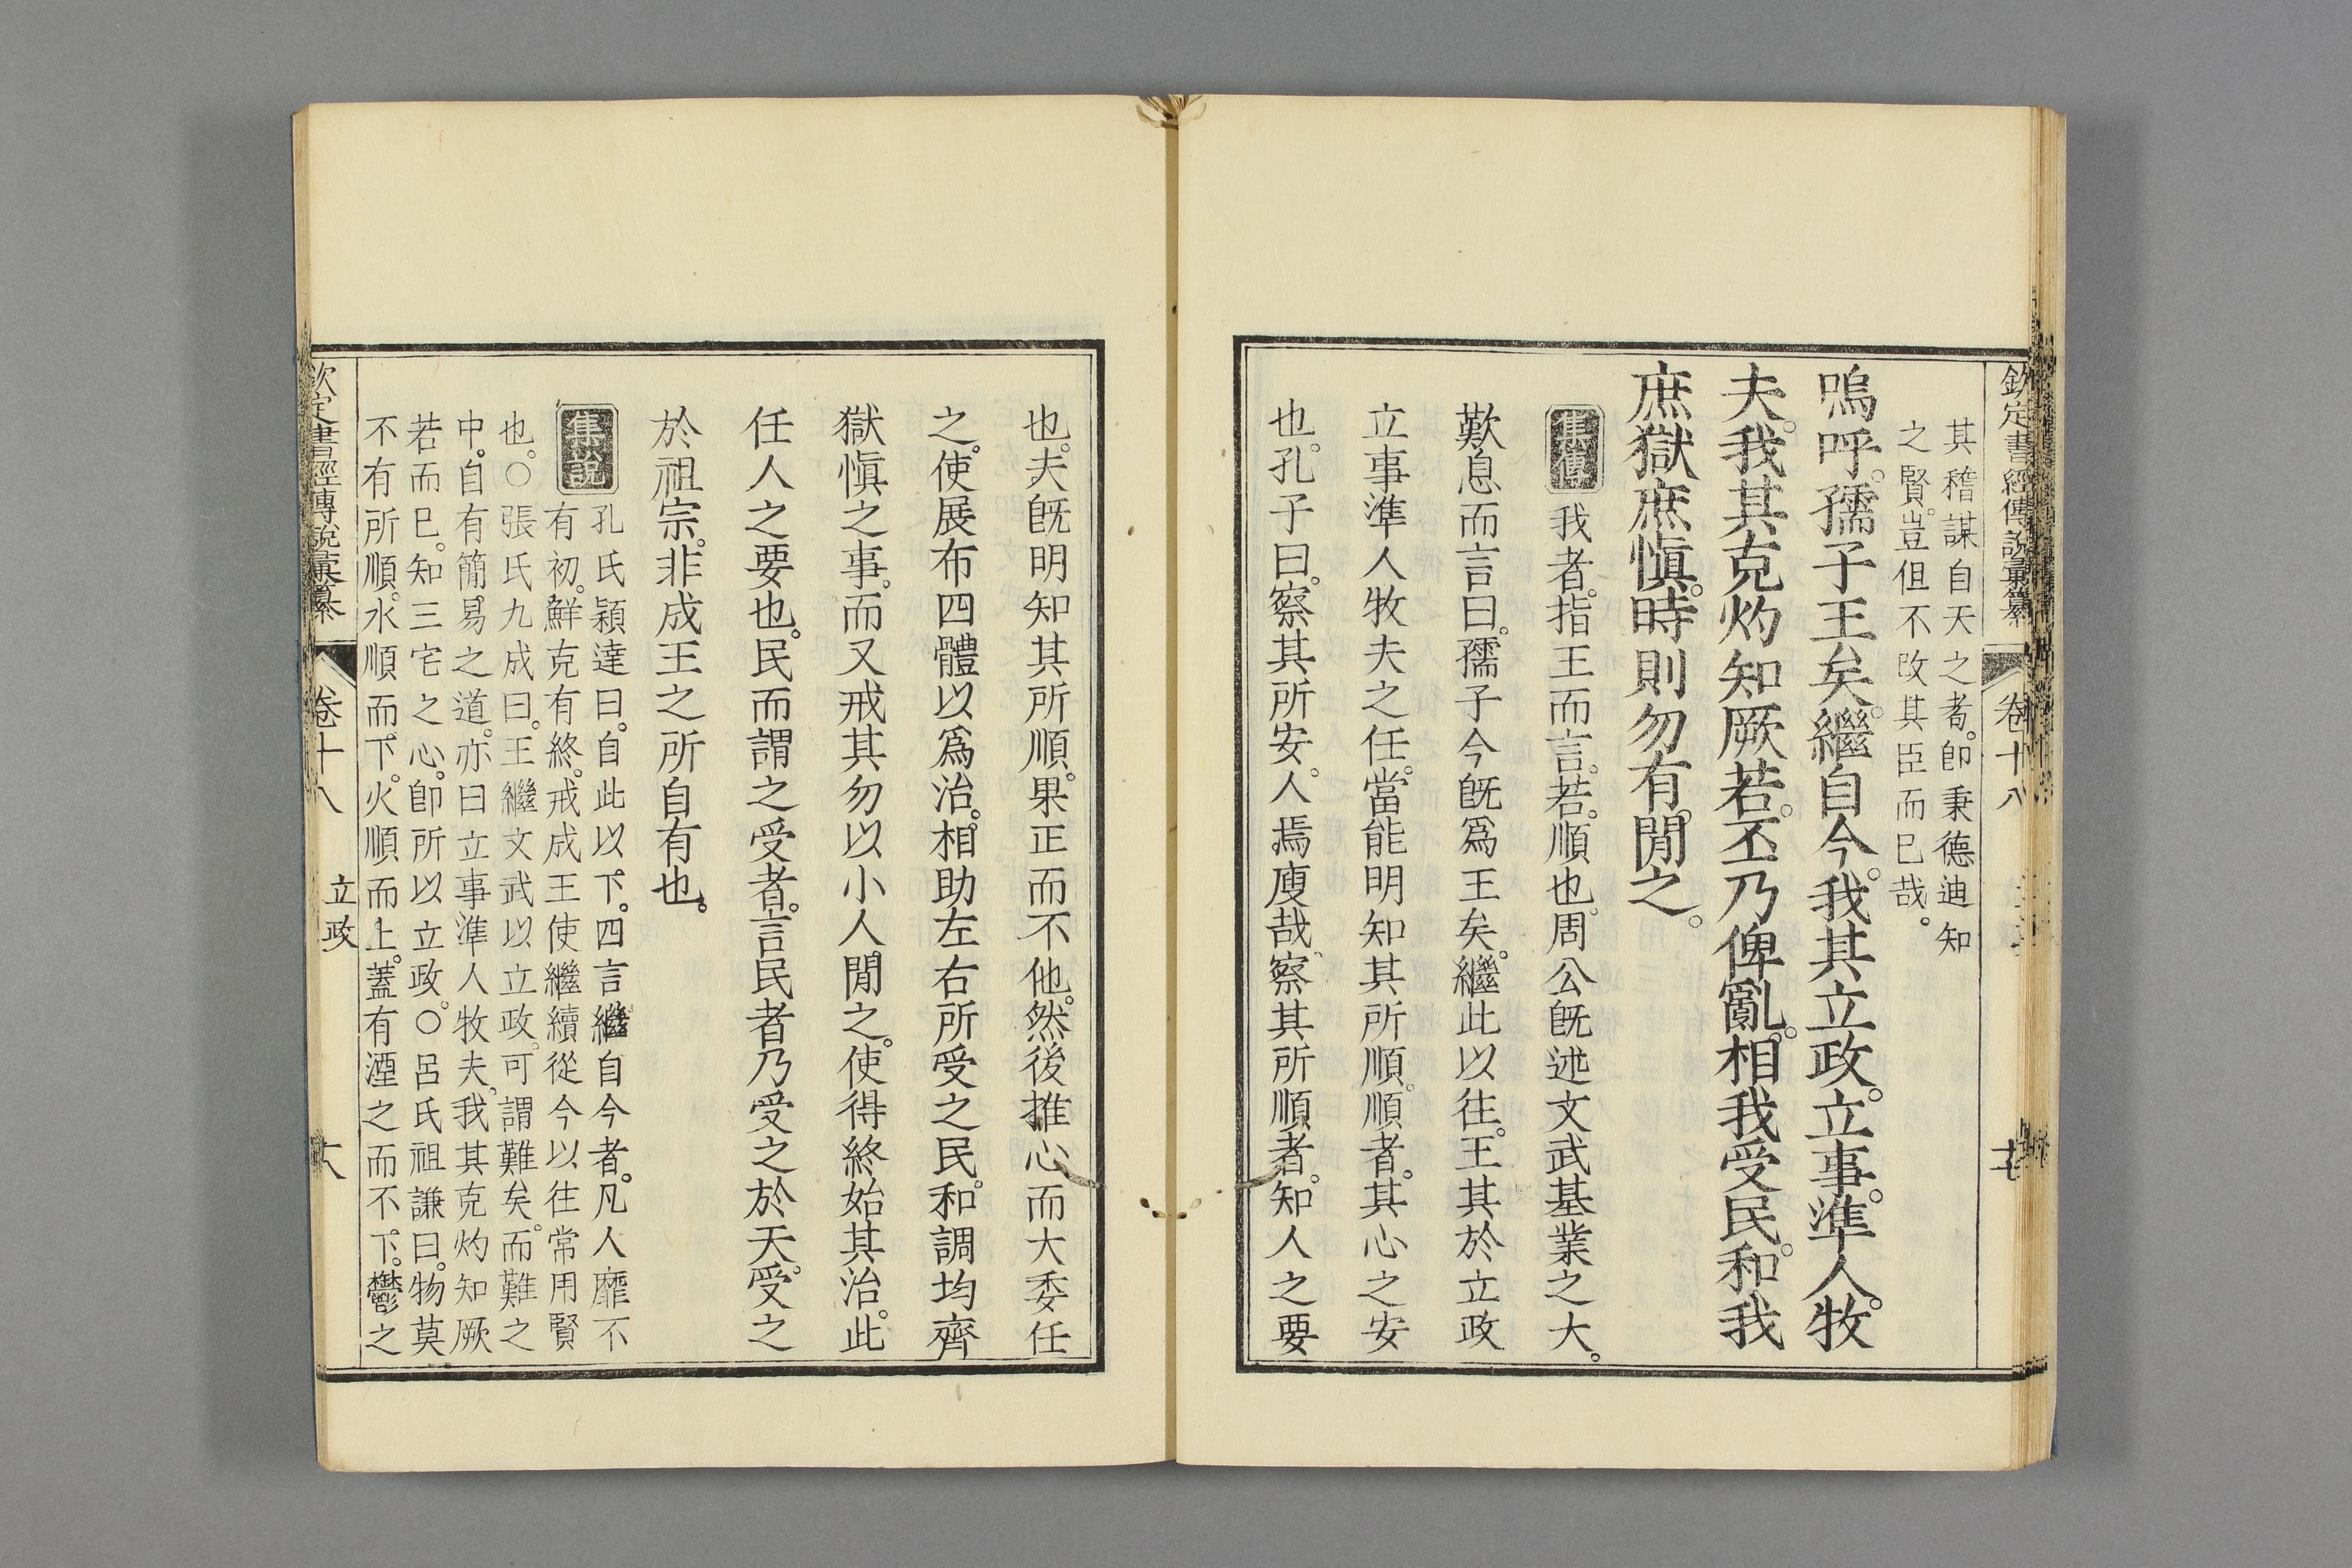 欽定書經傳說彙纂 卷十八
其稽謀自天之者。卽秉德迪知
之賢。豈但不改其臣而已哉。
嗚呼。孺子王矣。繼自今。我其立政。立事。準人。牧
夫。我其克灼知厥若。丕乃俾亂。相我受民。和我
庶獄庶愼。時則勿有閒之。
集傳 我者。指王而言。若。順也。周公旣述文武基業之大。
歎息而言曰。孺子今旣爲王矣。繼此以往。王其於立政
立事準人牧夫之任。當能明知其所順。順者。其心之安
也。孔子曰。察其所安。人焉廋哉。察其所順者。知人之要
也。夫旣明知其所順。果正而不他。然後推心而大委任
之。使展布四體以爲治。相助左右所受之民。和調均齊
獄愼之事。而又戒其勿以小人閒之。使得終始其治。此
任人之要也。民而謂之受者。言民者乃受之於天。受之
於祖宗。非成王之所自有也。
集說 孔氏穎達曰。自此以下。四言繼自今者。凡人靡不
有初。鮮克有終。戒成王使繼續從今以往常用賢
也。○張氏九成曰。王繼文武以立政。可謂難矣。而難之
中。自有簡易之道。亦曰立事準人牧夫。我其克灼知厥
若而已。知三宅之心。卽所以立政。○呂氏祖謙曰。物莫
不有所順。水順而下。火順而上。蓋有湮之而不下。鬱之
欽定書經傳說彙纂 卷十八 立政 十八